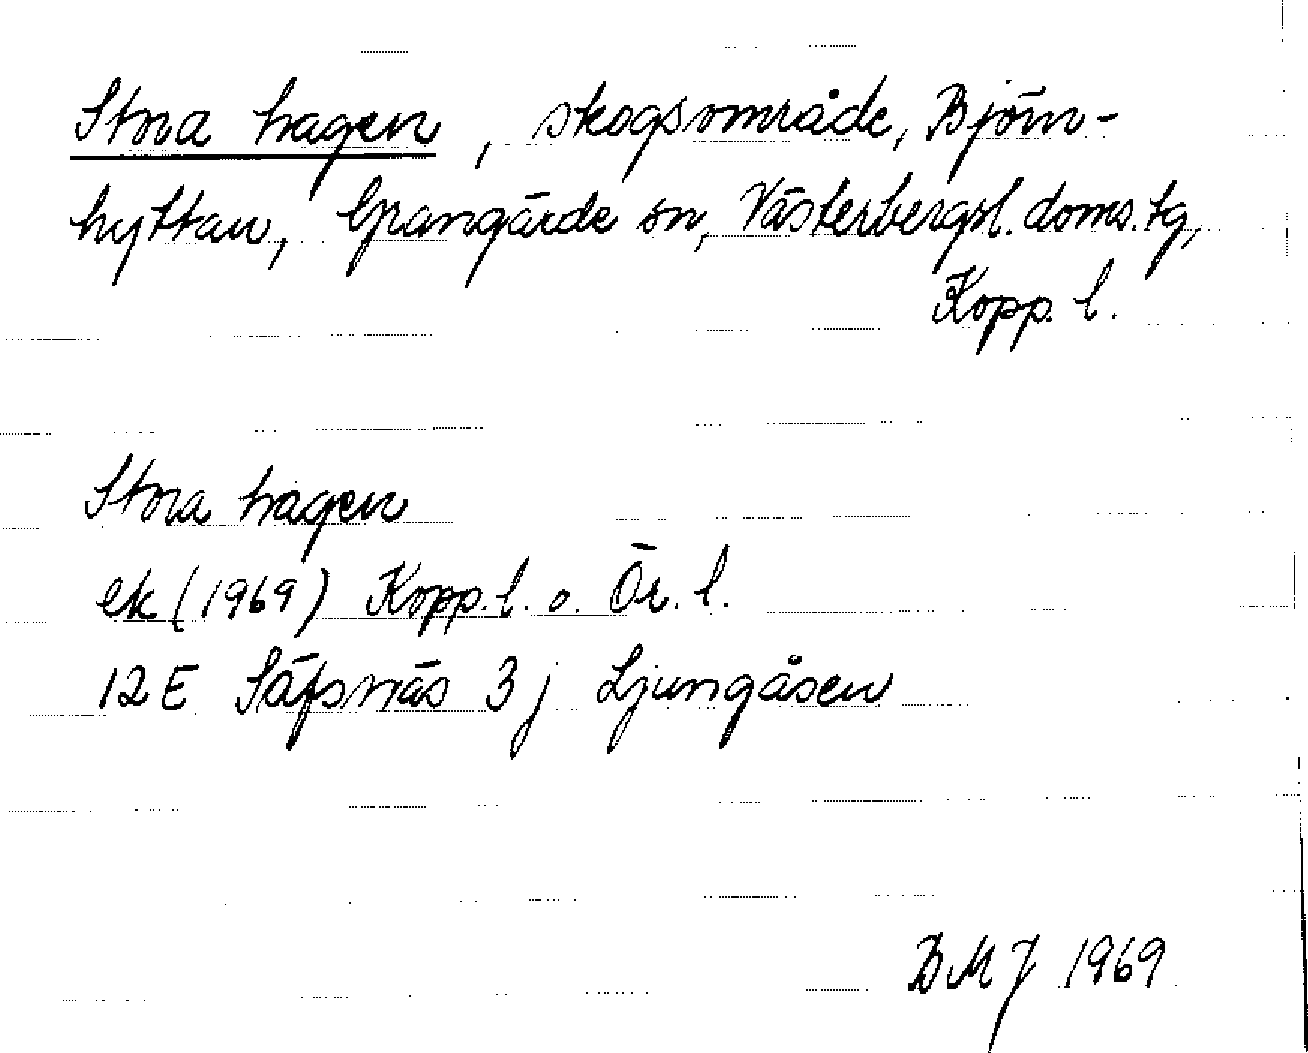 Stora hagen, skogsområde, Björn-
hyttan, Grangärde sn, Västerbergsl. doms. tg,
Kopp. l.
Stora hagen
ek (1969) Kopp. l. o. Ör. l.
12E Säfsnäs 3j Ljungåsen
BMJ 1969